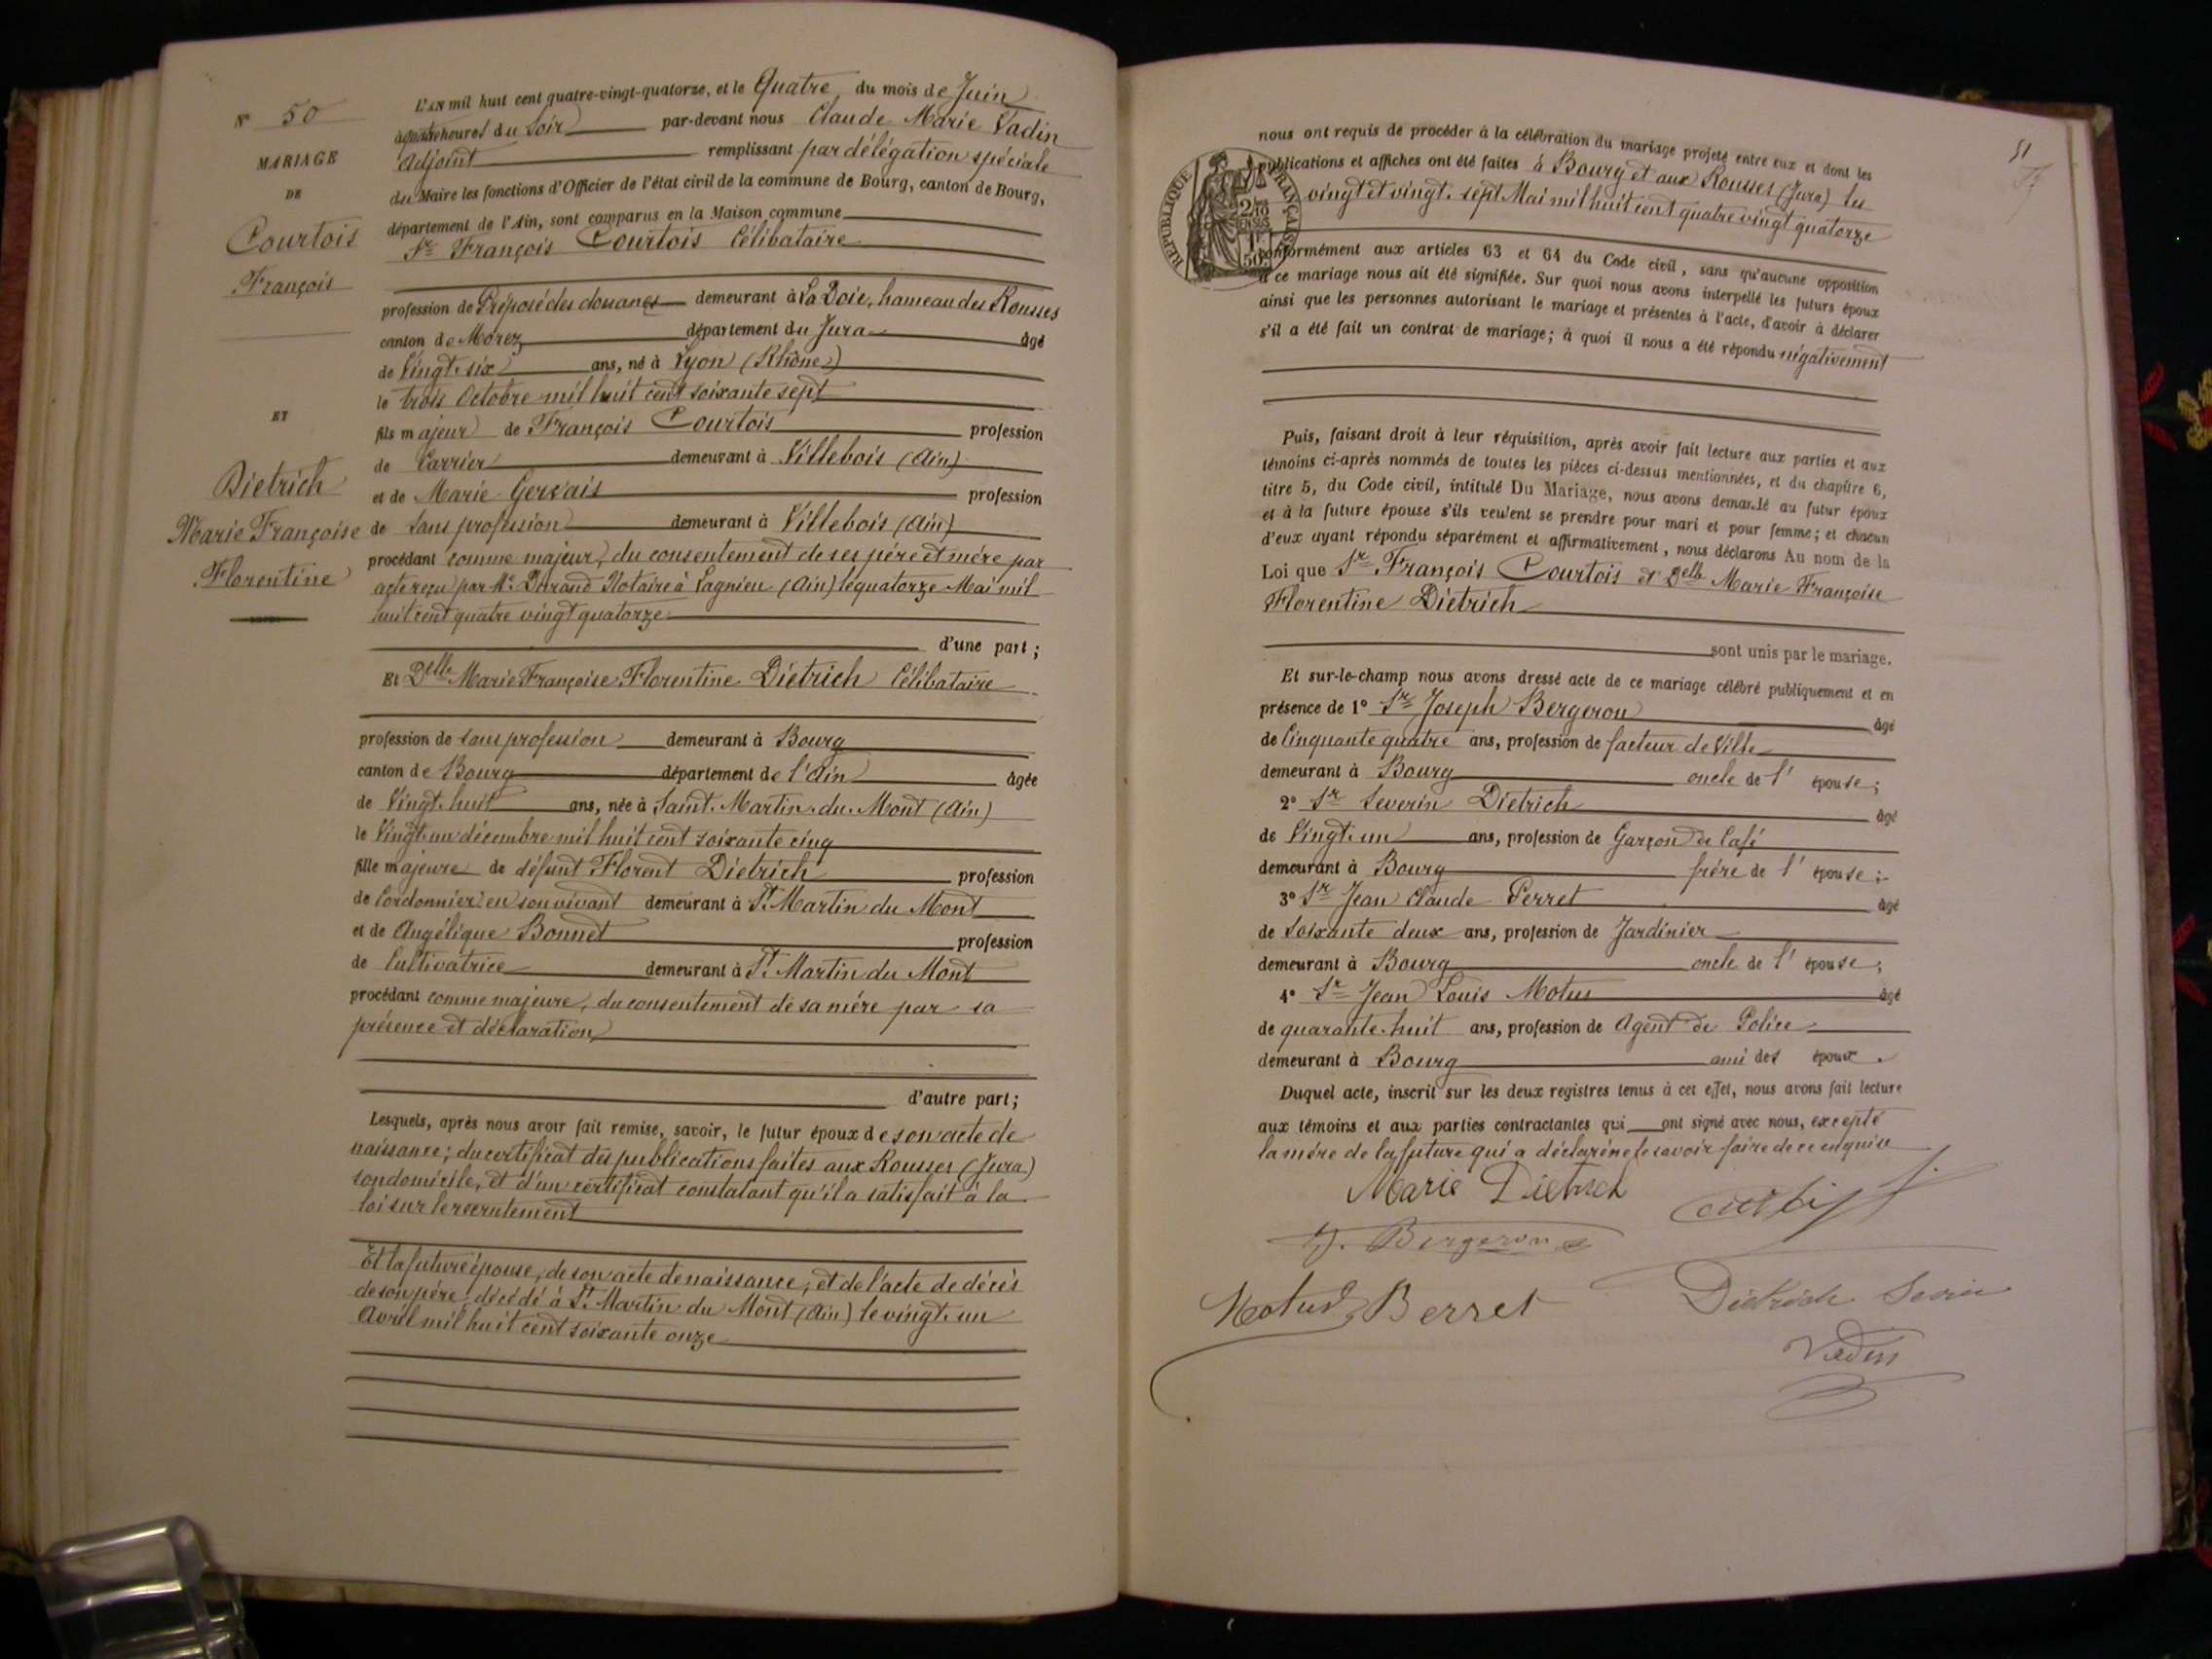 N° 50
MARIAGE
DE
Courtois
François
ET
Dietrich
Marie Françoise
Florentine
L'AN mil huit cent quatre-vingt-quatorze, et le Quatre du mois de Juin
à quatre heures du Soir par-devant nous Claude Marie Vadin
Adjoint remplissant par délégation spéciale
du Maire les fonctions d'Officier de l'état civil de la commune de Bourg, canton de Bourg,
département de l'Ain, sont comparus en la Maison commune
Sr François Courtois Célibataire
profession de Préposé des douanes demeurant à La Doie, hameau des Rousses
canton de Morez département du Jura âgé
de Vingt-six ans, né à Lyon (Rhône)
le trois Octobre mil huit cent soixante sept
fils majeur de François Courtois profession
de Carrier demeurant à Villebois (Ain)
et de Marie Gervais profession
de Sans profession demeurant à Villebois (Ain)
procédant comme majeur, du consentement de ses père et mère par
acte reçu par Me Notaire à Lagnieu (Ain) le quatorze Mai mil
huit cent quatre vingt quatorze
d'une part ;
Et Delle Marie Françoise Florentine Dietrich Célibataire
profession de sans profession demeurant à Bourg
canton de Bourg département de l'Ain âgée
de Vingt-huit ans, née à Saint-Martin-du-Mont (Ain)
le Vingt-un décembre mil huit cent soixante cinq
fille majeure de défunt Florent Dietrich profession
de Cordonnier en son vivant demeurant à St Martin du Mont
et de Angélique Bonnet profession
de Cultivatrice demeurant à St Martin du Mont
procédant comme majeure, du consentement de sa mère par sa
présence et déclaration
d'autre part ;
Lesquels, après nous avoir fait remise, savoir, le futur époux de son acte de
naissance ; du certificat des publications faites aux Rousses (Jura)
son domicile, et d'un certificat constatant qu'il a satisfait à la
loi sur le recrutement
Et la future épouse, de son acte de naissance, et de l'acte de décès
de son père, décédé à St Martin du Mont (Ain) le vingt-un
Avril mil huit cent soixante onze
51
nous ont requis de procéder à la célébration du mariage projeté entre eux et dont les
publications et affiches ont été faites à Bourg et aux Rousses (Jura) les
vingt et vingt-sept Mai mil huit cent quatre vingt quatorze
RÉPUBLIQUE FRANÇAISE
conformément aux articles 63 et 64 du Code civil, sans qu'aucune opposition
à ce mariage nous ait été signifiée. Sur quoi nous avons interpellé les futurs époux
ainsi que les personnes autorisant le mariage et présentes à l'acte, d'avoir à déclarer
s'il a été fait un contrat de mariage ; à quoi il nous a été répondu négativement
Puis, faisant droit à leur réquisition, après avoir fait lecture aux parties et aux
témoins ci-après nommés de toutes les pièces ci-dessus mentionnées, et du chapitre 6,
titre 5, du Code civil, intitulé Du Mariage, nous avons demandé au futur époux
et à la future épouse s'ils veulent se prendre pour mari et pour femme ; et chacun
d'eux ayant répondu séparément et affirmativement, nous déclarons Au nom de la
Loi que Sr François Courtois et Delle Marie Françoise
Florentine Dietrich
sont unis par le mariage.
Et sur-le-champ nous avons dressé acte de ce mariage célébré publiquement et en
présence de 1° Sr Joseph Bergeron âgé
de Cinquante quatre ans, profession de facteur de Ville
demeurant à Bourg oncle de l'épouse ;
2° Sr Severin Dietrich âgé
de Vingt-un ans, profession de Garçon de Café
demeurant à Bourg frère de l'épouse ;
3° Sr Jean Claude Perret âgé
de Soixante deux ans, profession de Jardinier
demeurant à Bourg oncle de l'épouse ;
4° Sr Jean Louis Motus âgé
de quarante-huit ans, profession de Agent de Police
demeurant à Bourg ami des époux.
Duquel acte, inscrit sur les deux registres tenus à cet effet, nous avons fait lecture
aux témoins et aux parties contractantes qui ont signé avec nous, excepté
la mère de la future qui a déclaré ne le savoir faire de ce enquise
Marie Dietrich
J. Bergeron
Motus Berret
Dietrich
Vadin